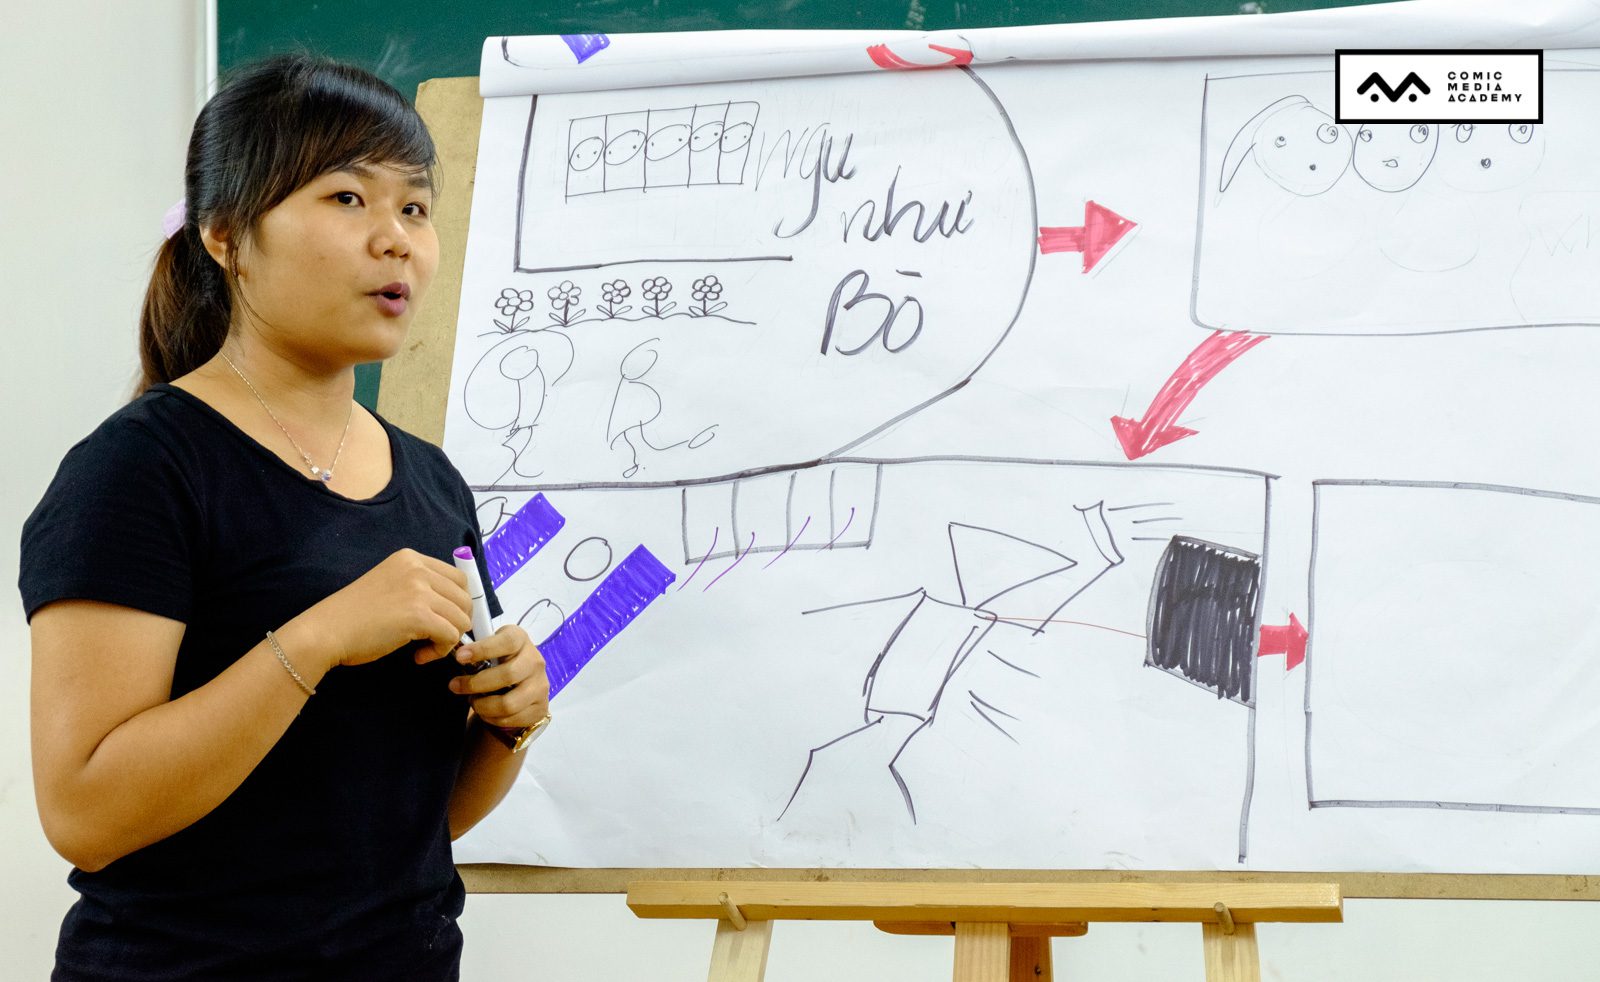 Ngu
như
Bò
COMIC
MEDIA
ACADEMY